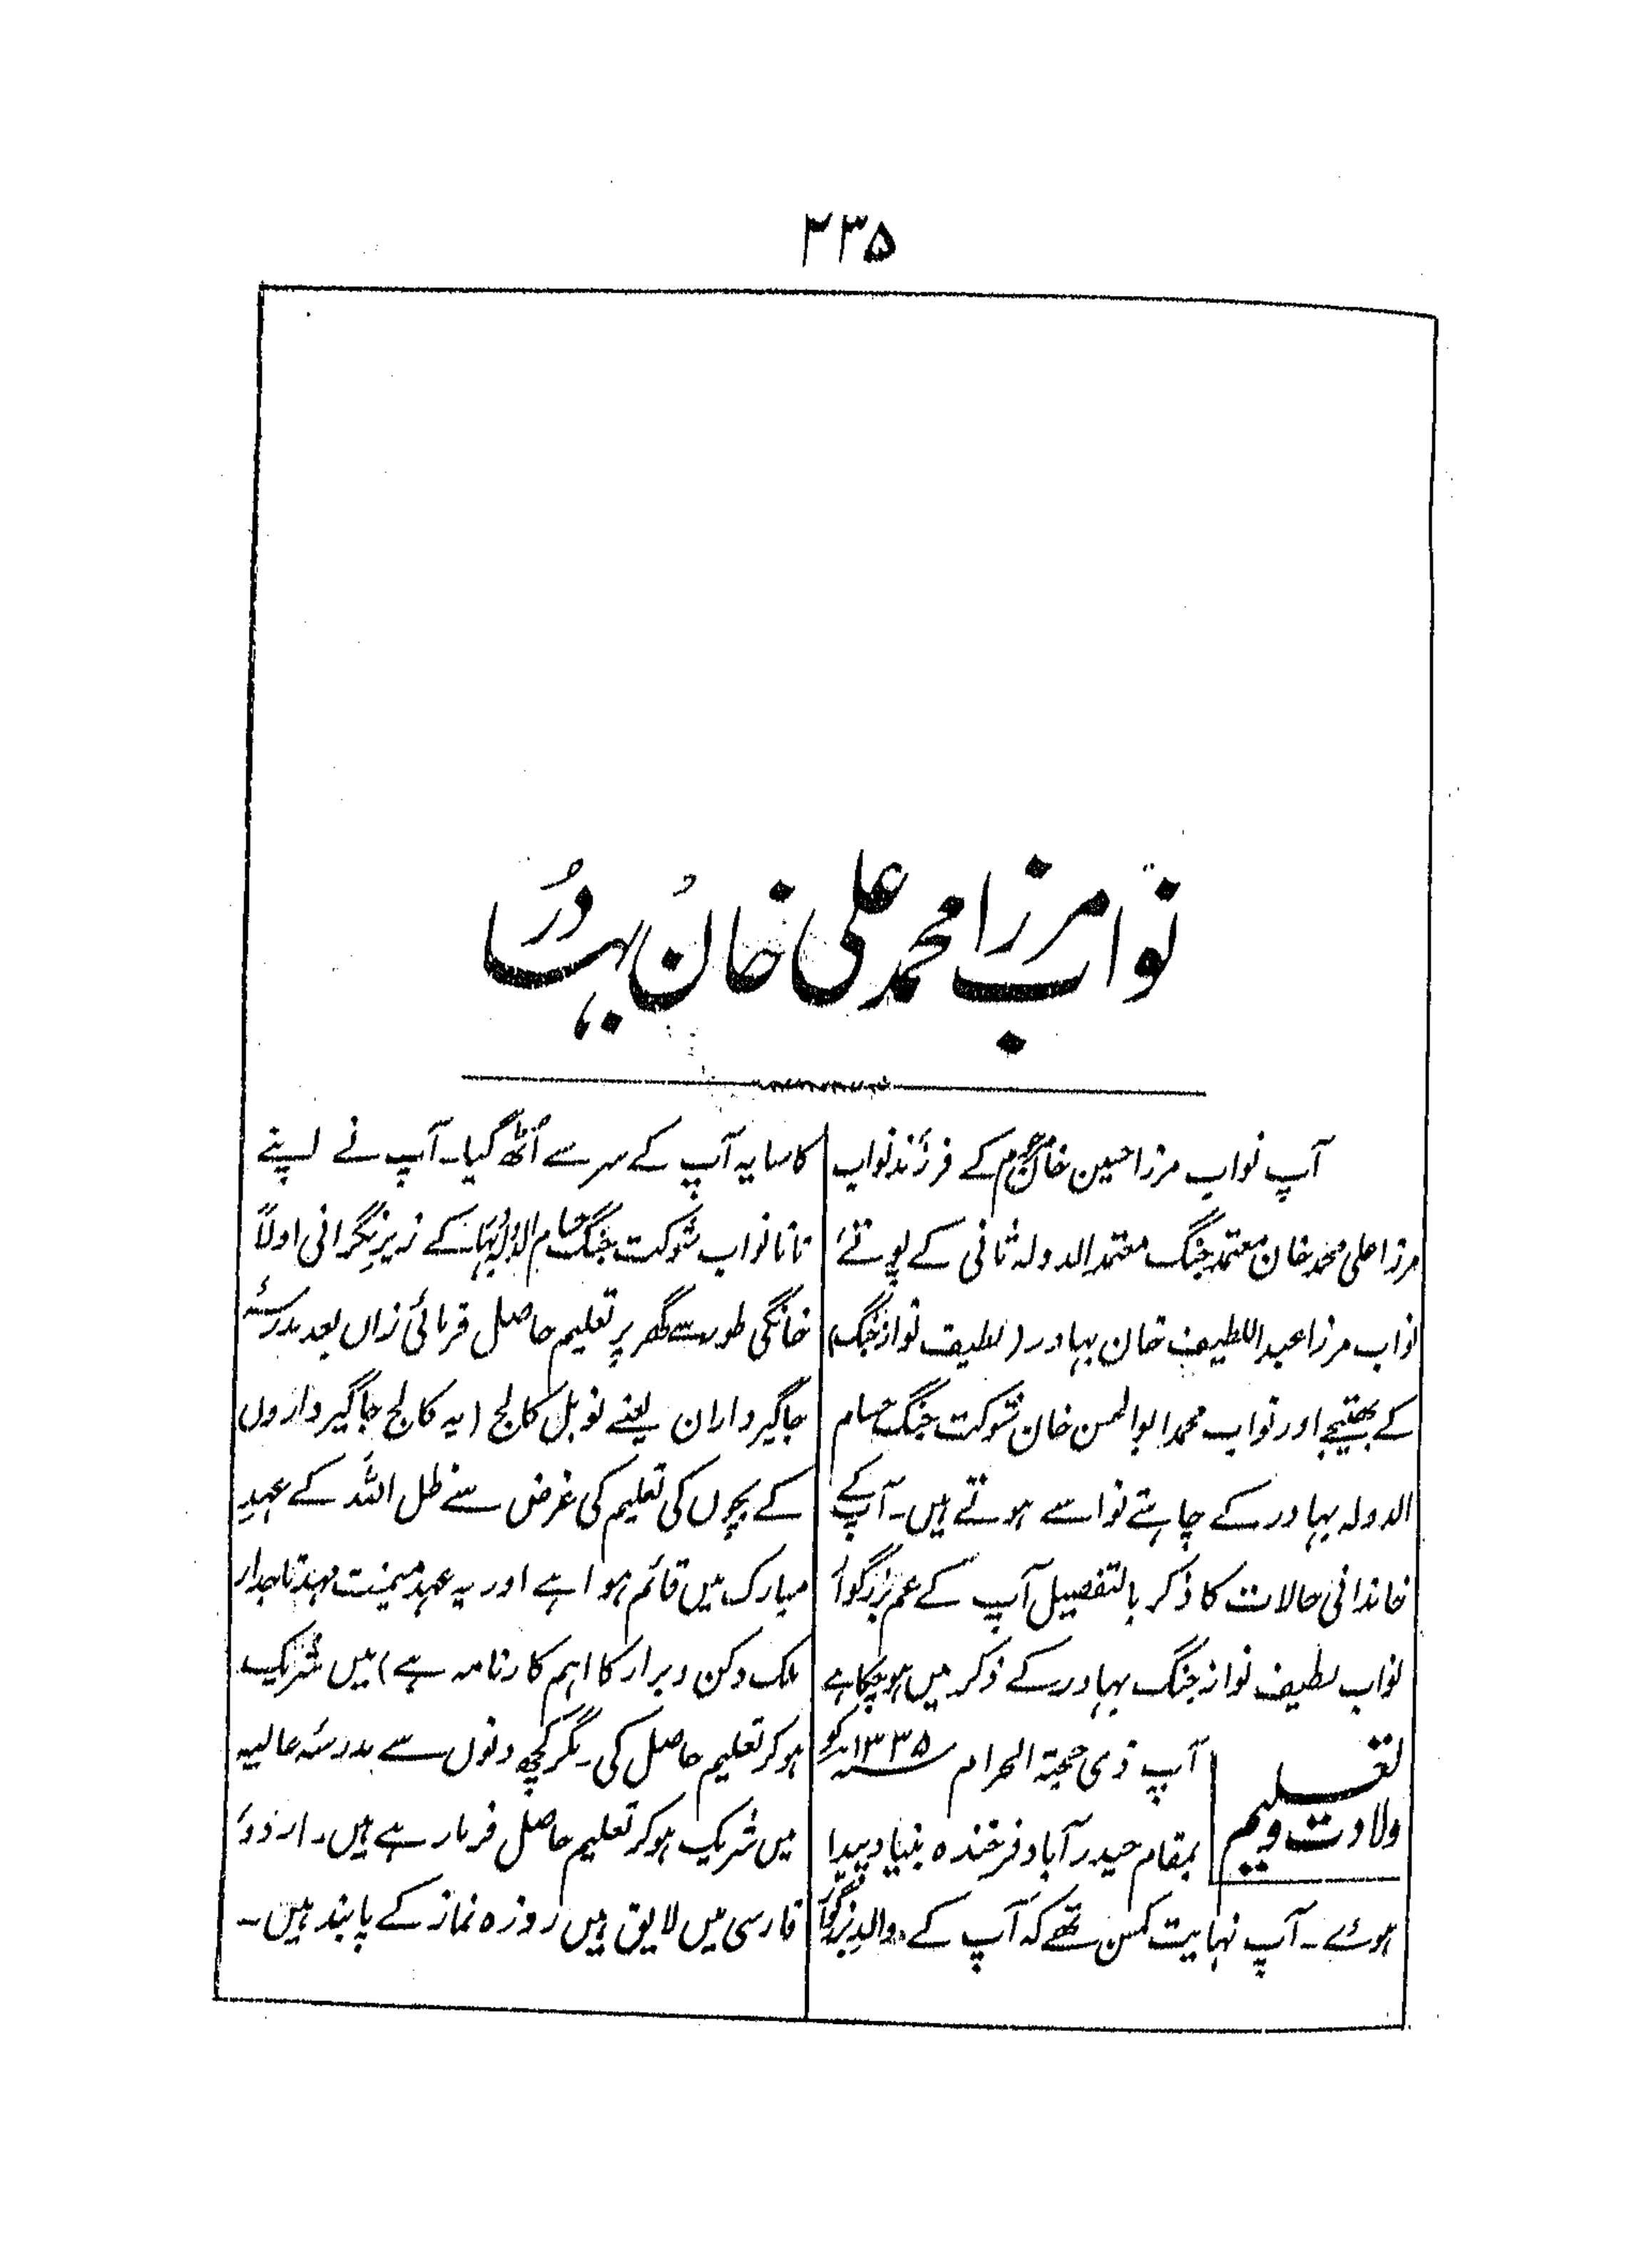 ۲۳۵
نواب مرزا محمد علی خان بہادر
آپ نواب مرزا حسین خان مرحوم کے فرزند نواب
مرزا علی محمد خان معتمد جنگ معتمد الدولہ ثانی کے پوتے
نواب مرزا عبداللطیف خان بہادر (لطیف نواز جنگ)
کے بھتیجے اور نواب محمد ابوالحسن خان شوکت جنگ حسام
الدولہ بہادر کے چاہتے نواسے ہوتے ہیں۔ آپ کے
خاندانی حالات کا ذکر بالتفصیل آپ کے عم بزرگوار
نواب لطیف نواز جنگ بہادر کے ذکر میں ہوچکا ہے
ولادت و تعلیم
آپ ذی حجۃ الحرام ۱۳۳۵ سنہ کو
بمقام حیدرآباد فرخندہ بنیاد پیدا
ہوئے۔ آپ نہایت کمسن تھے کہ آپ کے والد بزرگوار
کا سایہ آپ کے سر سے اُٹھ گیا۔ آپ نے اپنے
نانا نواب شوکت جنگ حسام الدولہ بہادر کے زیرِ نگرانی اولاً
خانگی طور سے گھر پر تعلیم حاصل فرمائی زاں بعد مدرسۂ
جاگیرداران یعنے نوبل کالج (یہ کالج جاگیرداروں
کے بچوں کی تعلیم کی غرض سے ظل اللہ کے عہدِ
مبارک میں قائم ہوا ہے اور یہ عہد میمنت مہد تاجدار
ملک دکن و برار کا اہم کارنامہ ہے) میں شریک
ہو کر تعلیم حاصل کی۔ مگر کچھ دنوں سے مدرسۂ عالیہ
میں شریک ہو کر تعلیم حاصل فرمارہے ہیں۔ اردو
فارسی میں لایق ہیں روزہ نماز کے پابند ہیں۔